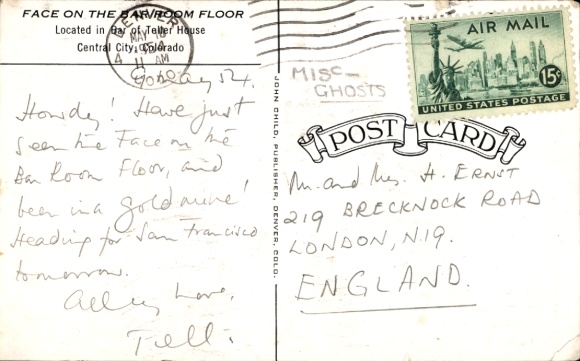 FACE ON THE BAR ROOM FLOOR
Located in Bar of Teller House
Central City, Colorado
DENVER
MAY 10
11 AM
May 54.
Howdy! Have just
seen the Face on the
Bar Room Floor, and
been in a gold mine!
Heading for San Francisco
tomorrow.
All my Love,
JOHN CHILD, PUBLISHER, DENVER, COLO.
MISC-
GHOSTS
AIR MAIL
15¢
UNITED STATES POSTAGE
POST CARD
Mr. and Mrs. H. ERNST
219 BRECKNOCK ROAD
LONDON, N.19.
ENGLAND.